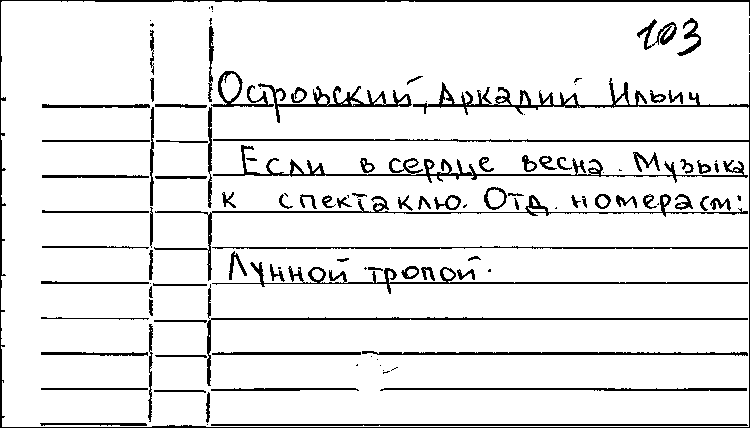 103
Островский, Аркадий Ильич
Если в сердце весна. Музыка
к спектаклю. Отд. номера см:
Лунной тропой.